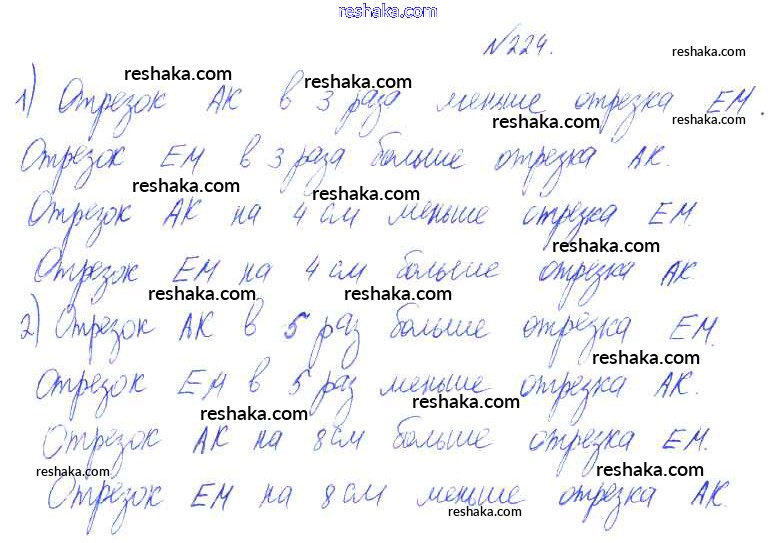 reshaka.com
№224.
reshaka.com
reshaka.com
reshaka.com
1) Отрезок АК в 3 раза меньше отрезка ЕМ.
reshaka.com
reshaka.com
Отрезок ЕМ в 3 раза больше отрезка АК.
reshaka.com
reshaka.com
Отрезок АК на 4 см меньше отрезка ЕМ.
reshaka.com
Отрезок ЕМ на 4 см больше отрезка АК.
reshaka.com
reshaka.com
2) Отрезок АК в 5 раз больше отрезка ЕМ.
reshaka.com
Отрезок ЕМ в 5 раз меньше отрезка АК.
reshaka.com
reshaka.com
Отрезок АК на 8 см больше отрезка ЕМ.
reshaka.com
reshaka.com
Отрезок ЕМ на 8 см меньше отрезка АК.
reshaka.com